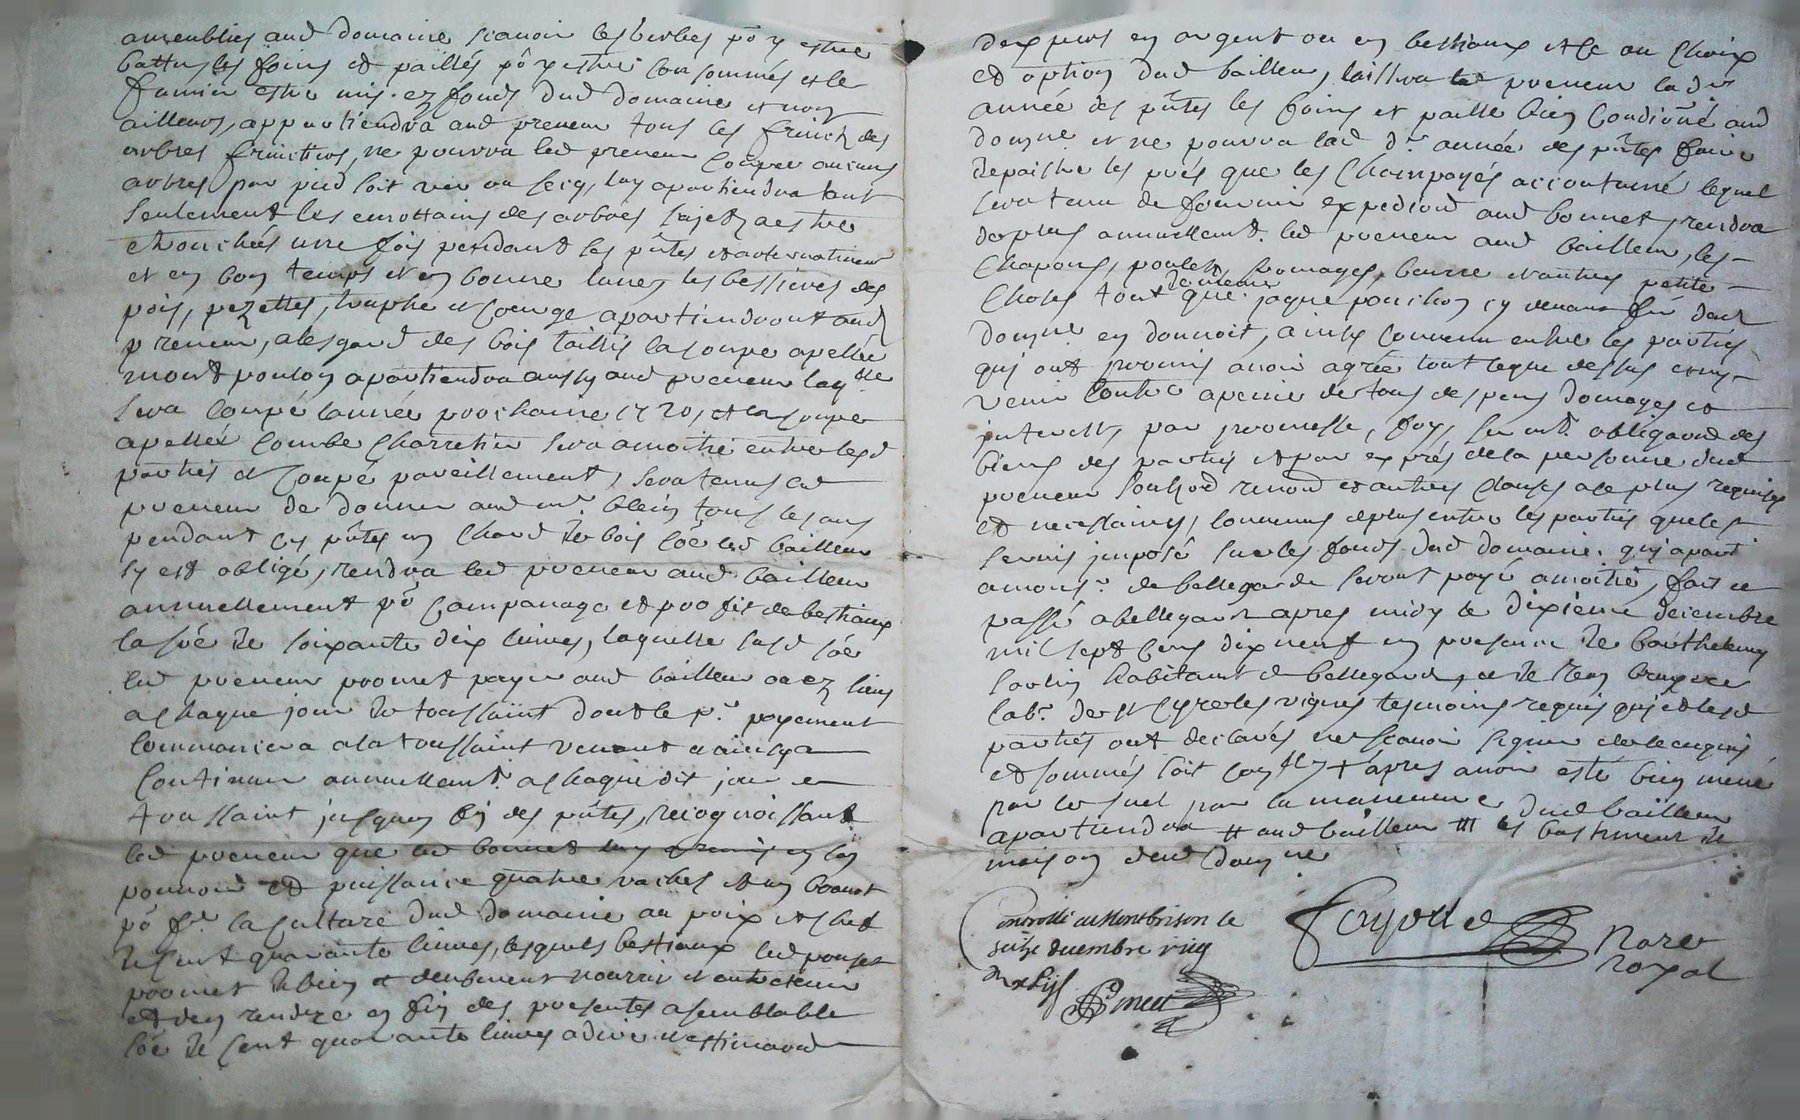 ameublies aud domaine scauoir les herbes pô y estre
battus les foins et paillés pô y estre consommés et le
fumier estre mis ez fonds dud domaine et non
ailleurs, appartiendra aud preneur tous les fruicts des
arbres fruictiers, ne pourra led preneur couper aucuns
arbres par pied soit ver ou secq, luy apartiendra tant
seulement les emottains des arbres sujets a estre
une fois pendant les pñtes et
et en bon temps et en bonne lune, les des
pois, pezettes, truphe et courge apartiendront aud
preneur, a lesgard des bois taillis la coupe apellée
mont poulon apartiendra aussy aud preneur laqlle
sera coupé lannée prochaine 1720, et la coupe
apellée Combe Charretin sera a moitié entre lesd
partiés et coupé pareillement, sera tenu led
preneur de donner aud mr. blein tous les ans
pendant ces pñtes un chard de bois led bailleur
sy est obligé, rendra led preneur aud bailleur
annuellement pô Campanage et proffit de bestiaux
la sôe de soixante dix liures, laquelle susd sôe
led preneur promet payer aud bailleur ou ez siens
a chaque jour de toussaint dont le pr. payement
commancera a la toussaint venant et ainsy a
continuer annuellemt. a chaque dit jour de
toussaint jusques fin des pñtes, recognoissant
led preneur que led bonnet luy a remis en son
pouuoir et puissance quatre vaches et un
pô fre la culture dud domaine au prix et chet
de cent quarante liures, lesquels bestiaux led
promet de bien et deubement nourrir et entretenir
et den rendre en fin des presentes a semblable
sôe de cent quarante liures a dire et estimaôn
dexpers en argent ou en bestiaux et ce au choix
et option dud bailleur, laissera led preneur la dre
année des pñtes les foins et paille bien condiôné aud
domne. et ne pourra lad dre. année des pñtes faire
depaistre les prés que les champayés accoutumé lequel
sera tenu de fournir expediôn aud bonnet, rendra
de plus annuellemt. led preneur aud bailleur, les
chapons, poulets, fromages, beurre et autres petite
choses tout de mesme que jaque ponchon cy deuant dud
domne. en donnoit, ainsy conuenu entre les partiés
qui ont promis auoir agrée tout ceque dessus et ny
venir contre a peine de tous despens domages et
interests, par promesse, foy, sermt. obligaôn des
biens des partiés et par exprés de la personne dud
preneur soubzôn renonôn et autres clauses a ce plus requises
et necessaires, conuenus de plus entre les partiés que le
seruis imposé sur les fonds dud domaine, qui
a monsr. de bellegarde seront payé a moitié, fait et
passé a bellegarde apres midy le dixieme decembre
mil sept cens dix neuf en presence de barthelemy
habitant de bellegarde, et de
labr. de st Cyre les vignes tesmoins requis qui et lesd
partiés ont declarés ne scauoir signer de ce enquis
et sommés soit apres auoir esté bien mené
par le par la maneuure dud bailleur
apartiendra # aud bailleur ### es bastiment de
maison dud domne
Controllé a Montbrison le
seize decembre
Nore
royal